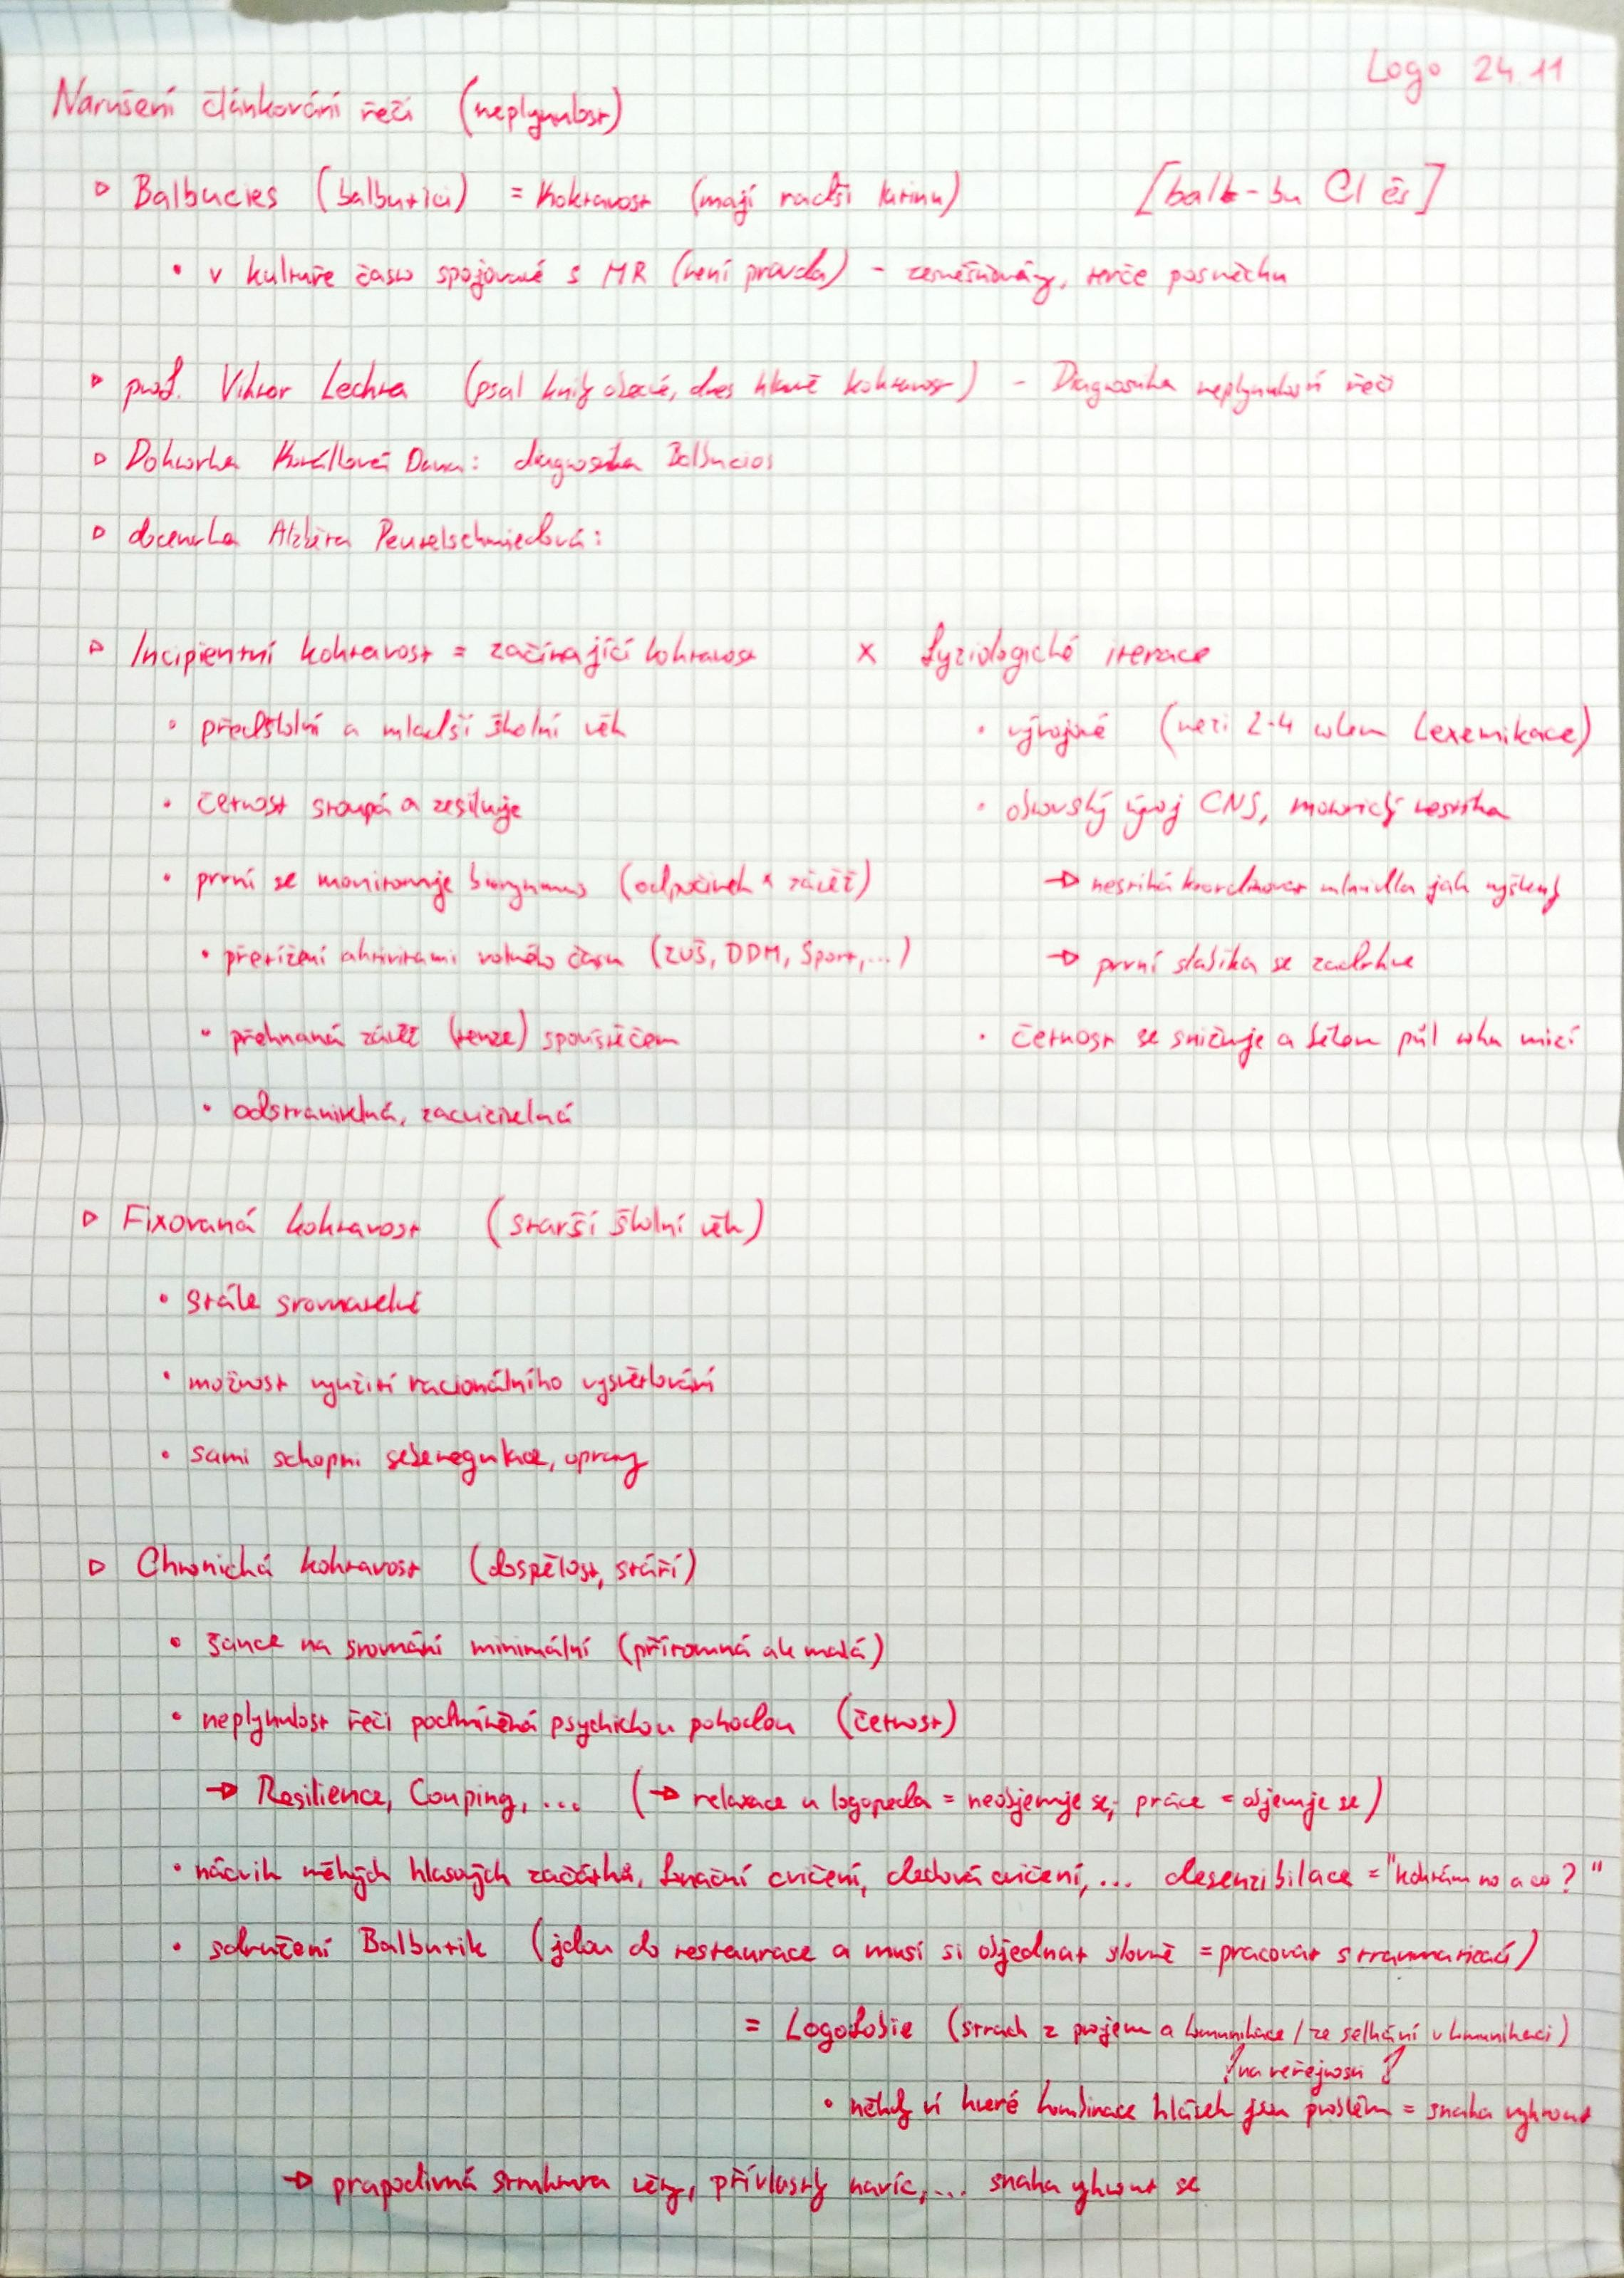 Logo 24.11
Narušení článkování řeči (neplynulost)
▷ Balbucies (balbutici) = Kokravost (mají radši latinu) [balb-bu CI és]
• v kultuře často spojované s MR (není pravda) - zesměšňovány, terče posměchu
▷ prof. Viktor Lechta (psal knihy obecné, dnes hlavně koktavost) - Diagnostika neplynulosti řeči
▷ Doktorka Kutálková Dana: diagnostika Balbucies
▷ docentka Alžběta Peutelschmiedová:
▷ Incipientní koktavost = začínající koktavost × fyziologické iterace
• předškolní a mladší školní věk
• četnost stoupá a zesiluje
• první se monitoruje biorytmus (odpočinek × zátěž)
• přetížení aktivitami volného času (ZUŠ, DDM, Sport,...)
• přehnaná zátěž (tenze) spouštěčem
• odstranitelná, zacvičitelná
• vývojové (mezi 2-4 rokem Lexemikace)
• obrovský vývoj CNS, motorický
→ nestíhá koordinovat mluvidla jak myšlenky
→ první slabika se zadrhne
• četnost se snižuje a během půl roku mizí
▷ Fixovaná koktavost (starší školní věk)
• stále srovnatelné
• možnost využití racionálního vysvětlování
• sami schopni seberegulace, opravy
▷ Chronická koktavost (dospělost, stáří)
• šance na srovnání minimální (přítomná ale malá)
• neplynulost řeči podmíněná psychickou pohodou (četnost)
→ Resilience, Couping, ... (→ relaxace u logopeda = neobjevuje se; práce = objevuje se)
• nácvik měkých hlasových začátků, fonační cvičení, dechová cvičení, ... desenzibilace = "koktám no a co?"
• sdružení Balbutik (jdou do restaurace a musí si objednat slovně = pracovat s traumatizací)
= Logofobie (strach z projevu a komunikace / ze selhání v komunikaci)
na veřejnosti
• někdy ví které kombinace hlásek jsou problém = snaha vyhnout
→ prapodivná struktura věty, přívlastky navíc,... snaha vyhnout se